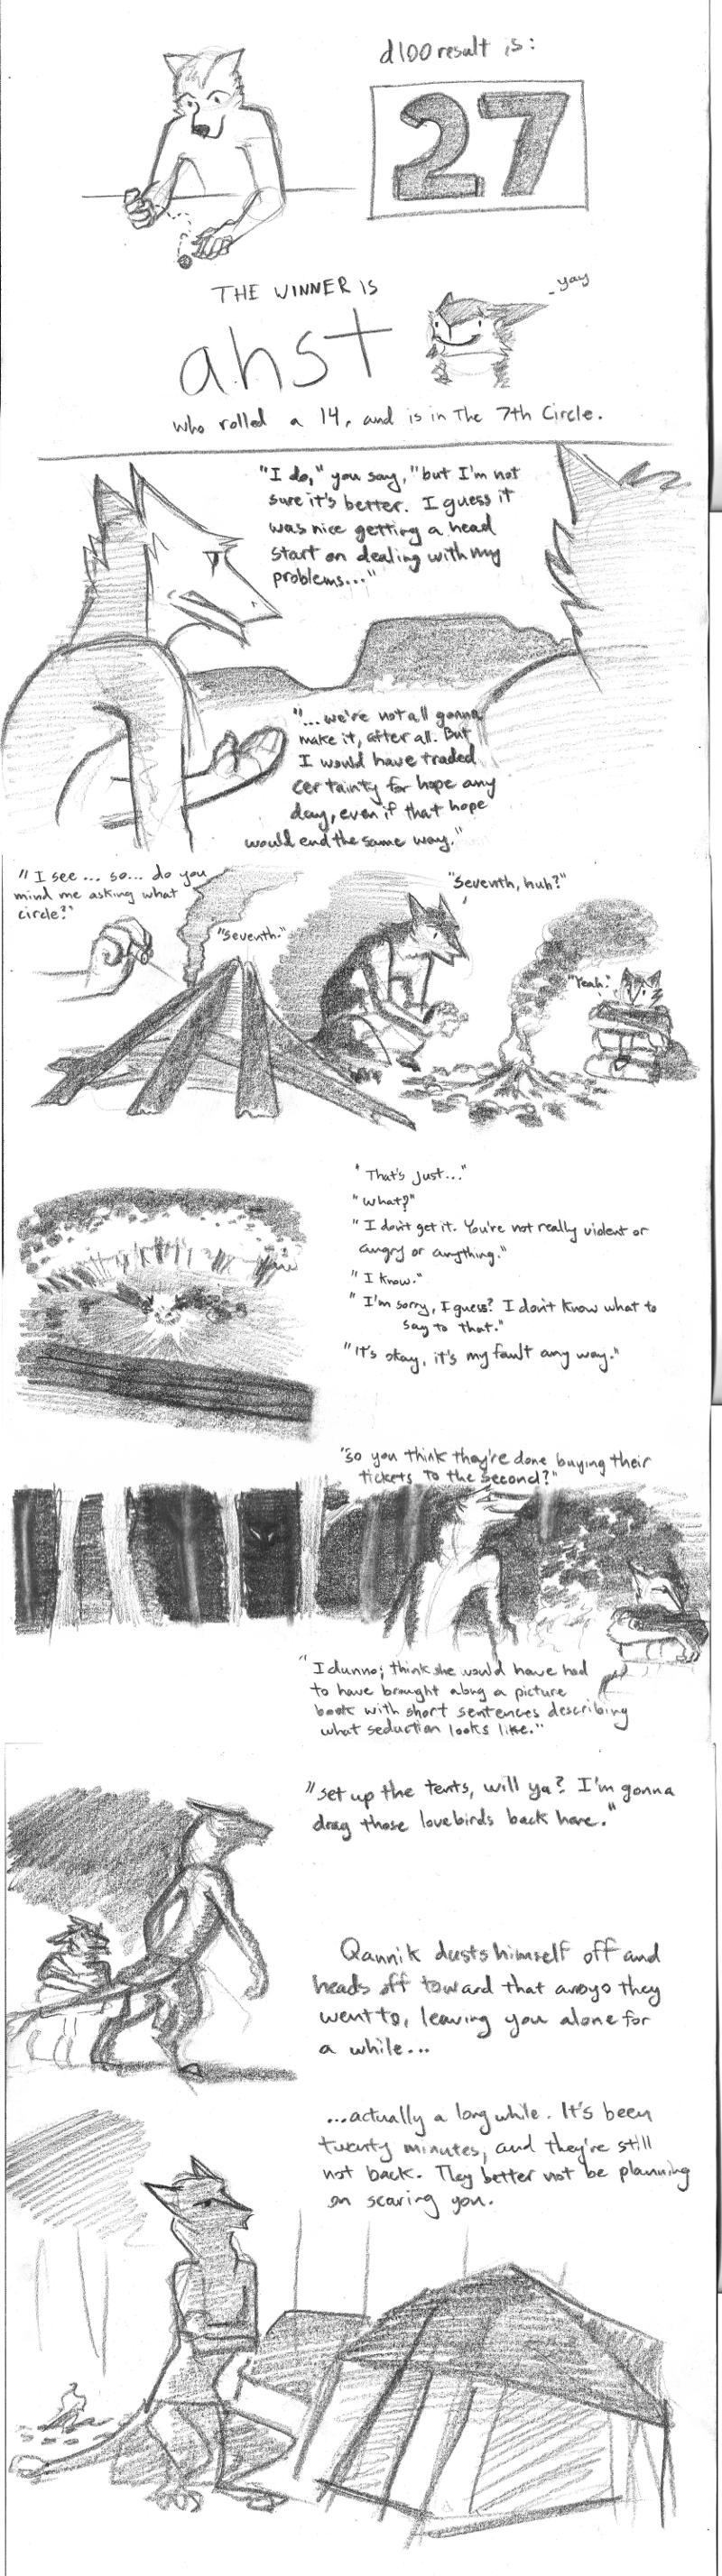 d100 result is:
27
THE WINNER IS
yay
ahst
who rolled a 14, and is in The 7th Circle.
"I do," you say, "but I'm not
sure it's better. I guess it
was nice getting a head
start on dealing with my
problems..."
"...we're not all gonna
make it, after all. But
I would have traded
certainty for hope any
day, even if that hope
would end the same way."
"I see... so... do you
mind me asking what
circle?"
"Seventh."
"Seventh, huh?"
"Yeah."
"That's just..."
"What?"
"I don't get it. You're not really violent or
angry or anything."
"I know."
"I'm sorry, I guess? I don't know what to
say to that."
"It's okay, it's my fault any way."
"So you think they're done buying their
tickets to the second?"
"I dunno; think she would have had
to have brought along a picture
book with short sentences describing
what seduction looks like."
"Set up the tents, will ya? I'm gonna
drag those lovebirds back here."
Qannik dusts himself off and
heads off toward that arroyo they
went to, leaving you alone for
a while...
...actually a long while. It's been
twenty minutes, and they're still
not back. They better not be planning
on scaring you.